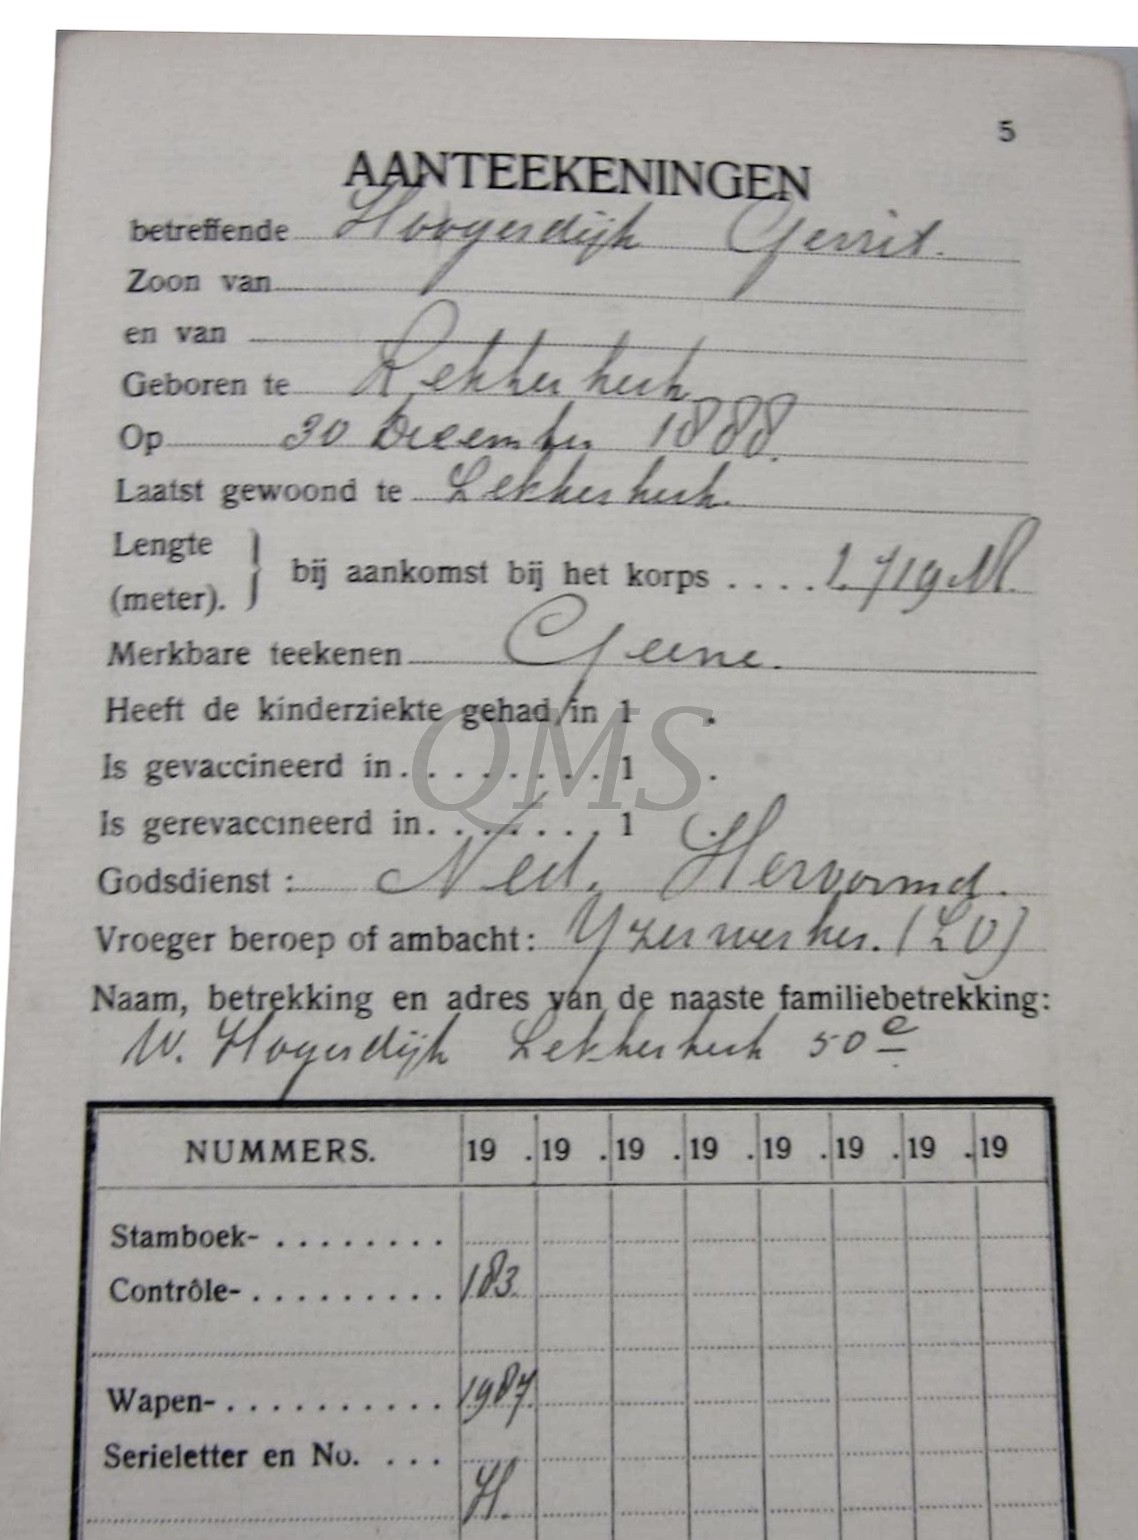 5
AANTEEKENINGEN
betreffende Hoogerdijk Gerrit.
Zoon van
en van
Geboren te Lekkerkerk
Op 30 December 1888.
Laatst gewoond te Lekkerkerk.
Lengte (meter). } bij aankomst bij het korps .... 1.719 M.
Merkbare teekenen Geene.
Heeft de kinderziekte gehad in 1 .
Is gevaccineerd in........ 1 .
Is gerevaccineerd in....... 1 .
Godsdienst: Ned. Hervormd.
Vroeger beroep of ambacht: Yzerwerker. (LO)
Naam, betrekking en adres van de naaste familiebetrekking:
W. Hogerdijk Lekkerkerk 50e
NUMMERS. 19 . 19 . 19 . 19 . 19 . 19 . 19 . 19
Stamboek- ........
Contrôle- ......... 183.
Wapen- .......... 1987.
Serieletter en No. ... H.
QMS